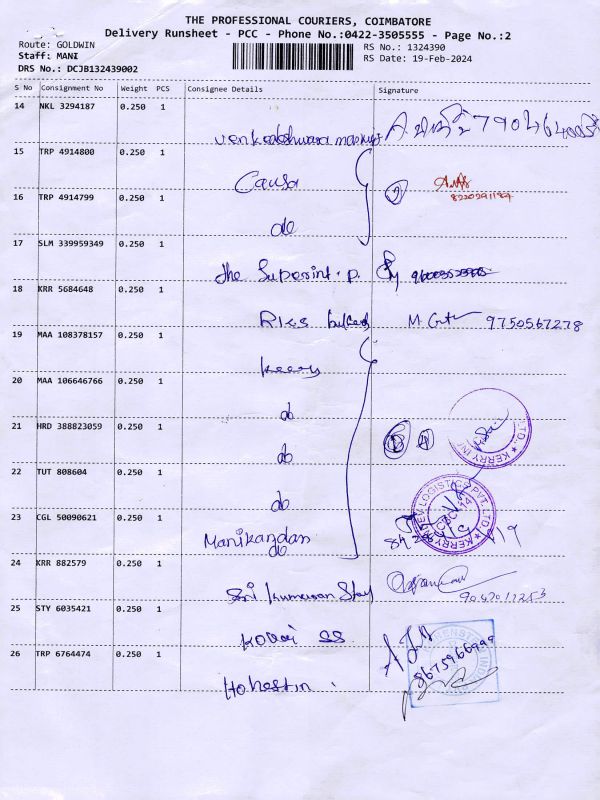 THE PROFESSIONAL COURIERS, COIMBATORE
Delivery Runsheet - PCC - Phone No.:0422-3505555 - Page No.:2
Route: GOLDWIN
RS No.: 1324390
Staff: MANI
RS Date: 19-Feb-2024
DRS No.: DCJB132439002
S No Consignment No Weight PCS Consignee Details Signature
14 NKL 3294187 0.250 1
15 TRP 4914800 0.250 1
Causa
16 TRP 4914799 0.250 1
do
17 SLM 339959349 0.250 1
the Superint. p.
18 KRR 5684648 0.250 1
9750567278
19 MAA 108378157 0.250 1
20 MAA 106646766 0.250 1
do
21 HRD 388823059 0.250 1
do
22 TUT 808604 0.250 1
do
23 CGL 50090621 0.250 1
Manikandan
do
24 KRR 882579 0.250 1
Sri Kumaran
25 STY 6035421 0.250 1
Kovai SS
8675966999
26 TRP 6764474 0.250 1